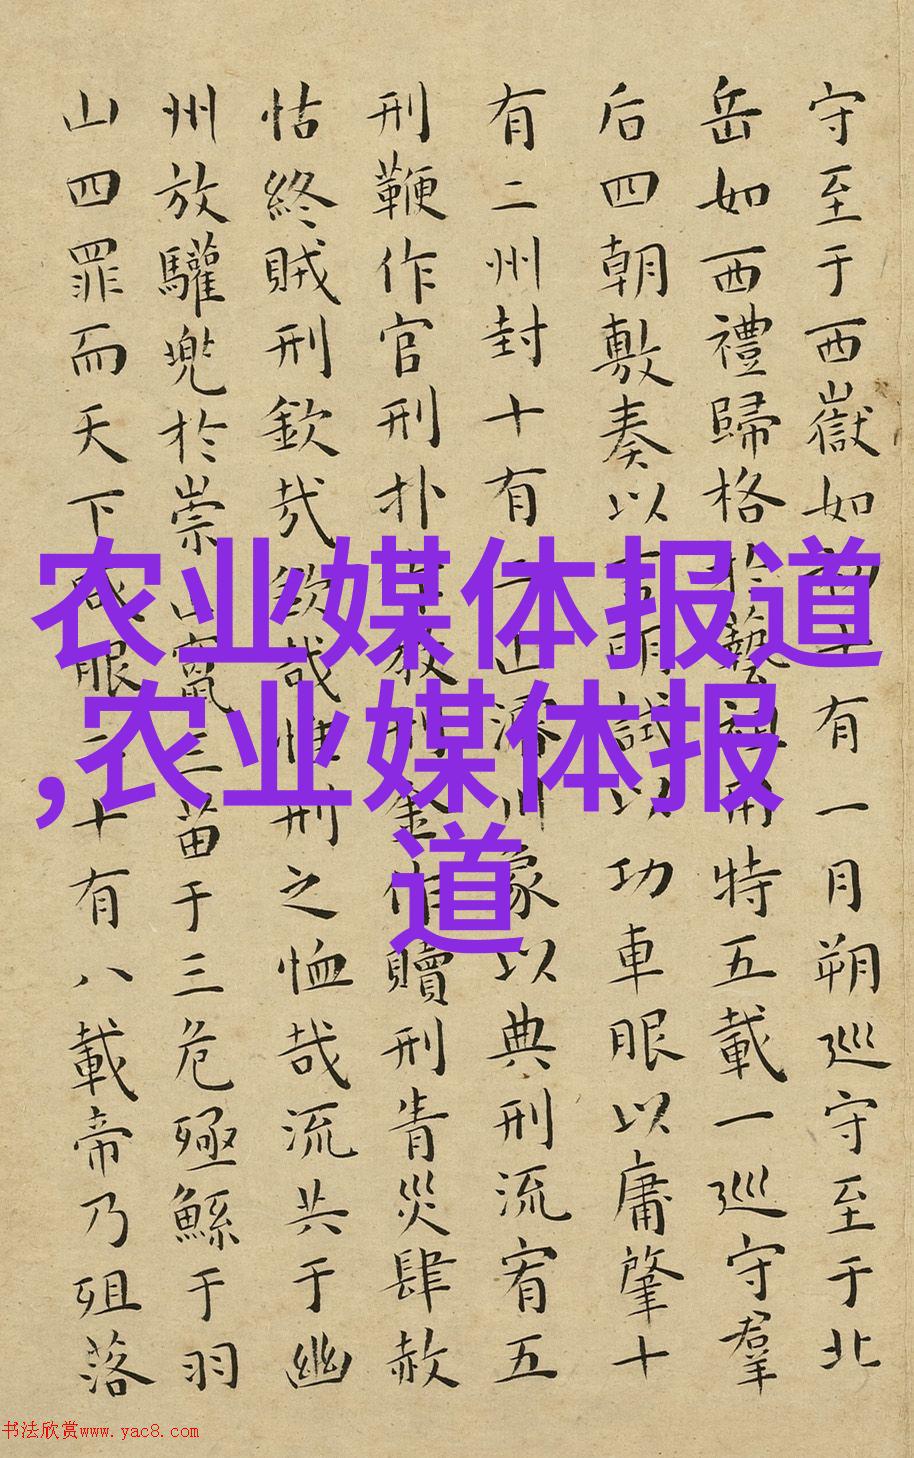 守至于西嶽如有一月朔巡守至于北
岳如西禮歸格於藝祖用特五載一巡守羣
后四朝敷奏以言明試以功車服以庸肇十
有二州封十有二山濬川象以典刑流宥五
刑鞭作官刑扑作教刑金作贖刑眚災肆赦
怙終賊刑欽哉欽哉惟刑之恤哉流共于幽
州放驩兜於崇山竄三苗于三危殛鯀于羽
山四罪而天下咸服二十有八載帝乃殂落
农业媒体报道
,农业媒体报
道
书法欣赏www.yac8.com